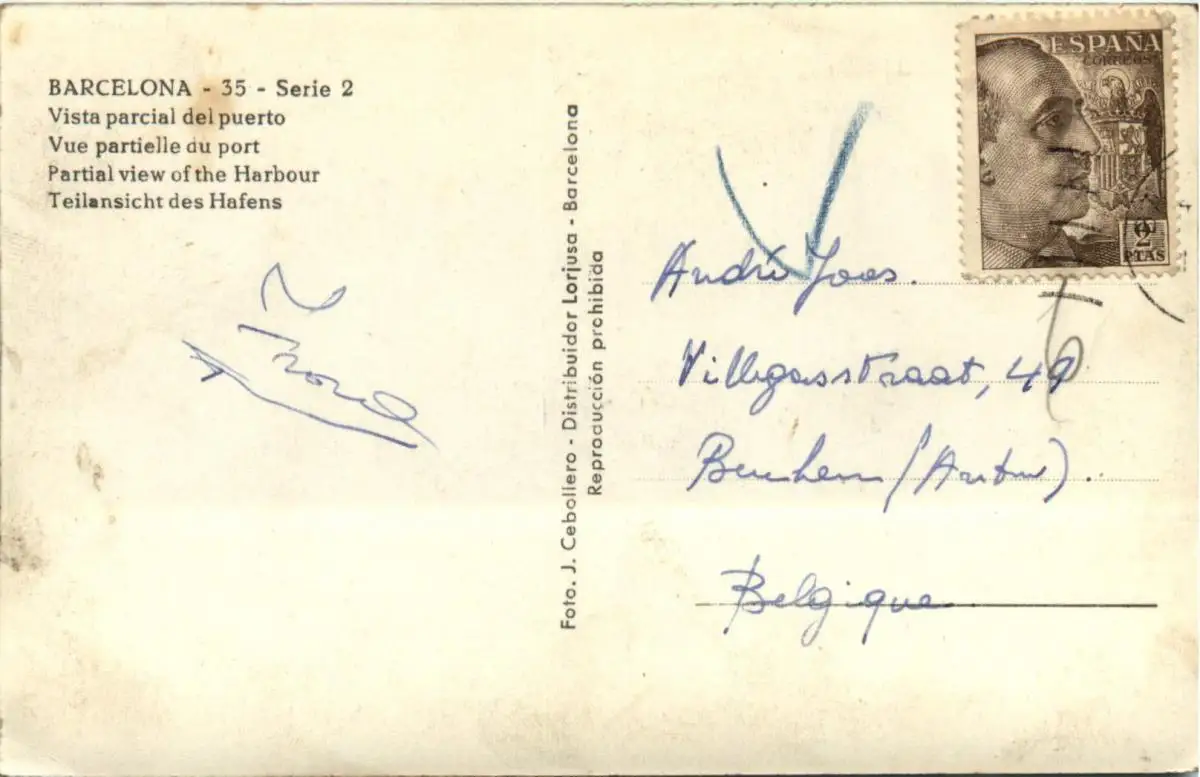 BARCELONA - 35 - Serie 2
Vista parcial del puerto
Vue partielle du port
Partial view of the Harbour
Teilansicht des Hafens
Foto. J. Cebollero - Distribuidor Lorjusa - Barcelona
Reproducción prohibida
ESPAÑA
CORREOS
2
PTAS
André Joos.
Villegasstraat, 49
Berchem (Antw).
Belgique